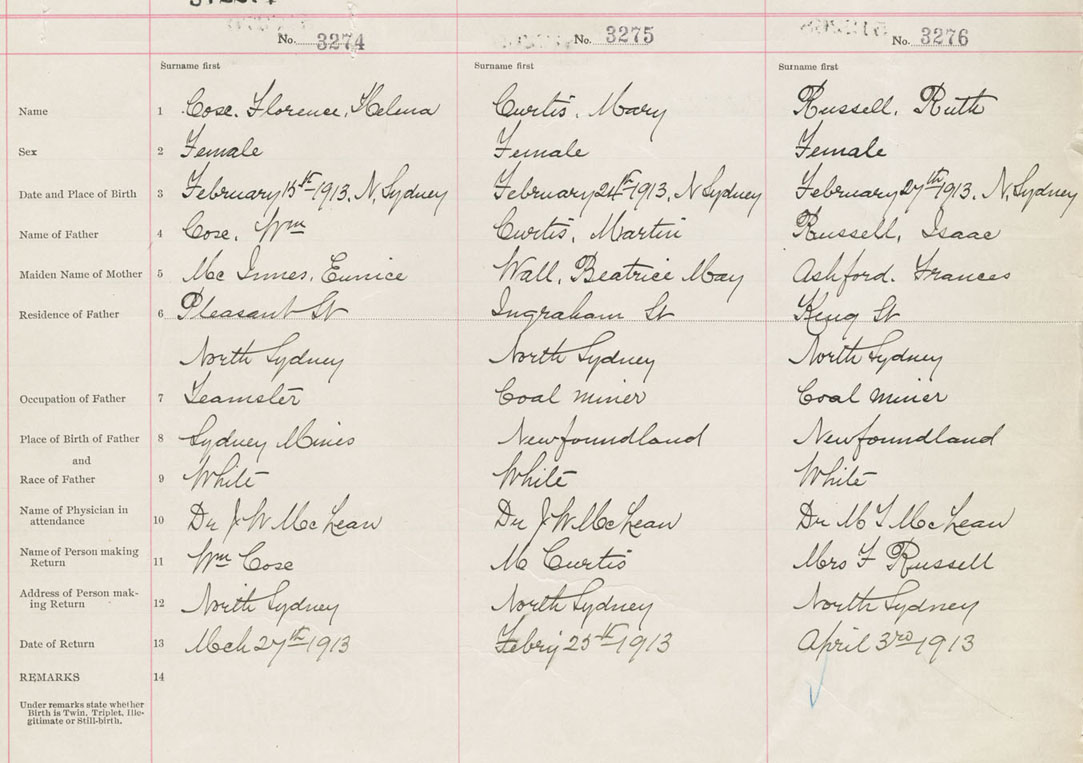 No. 3274 No. 3275 No. 3276
Surname first Surname first Surname first
Name 1 Cose. Florence, Helena Curtis, Mary Russell, Ruth
Sex 2 Female Female Female
Date and Place of Birth 3 February 15th 1913. N, Sydney February 24th 1913. N Sydney February 27th 1913. N, Sydney
Name of Father 4 Cose, Wm Curtis, Martin Russell, Isaac
Maiden Name of Mother 5 Mc Innes, Eunice Wall, Beatrice May Ashford. Frances
Residence of Father 6 Pleasant St Ingraham St King St
North Sydney North Sydney North Sydney
Occupation of Father 7 Teamster Coal miner Coal miner
Place of Birth of Father 8 Sydney Mines Newfoundland Newfoundland
and
Race of Father 9 White White White
Name of Physician in
attendance 10 Dr J W McLean Dr J W McLean Dr M T McLean
Name of Person making
Return 11 Wm Cose M Curtis Mrs F Russell
Address of Person mak-
ing Return 12 North Sydney North Sydney North Sydney
Date of Return 13 Mch 27th 1913 Febry 25th 1913 April 3rd 1913
REMARKS 14
Under remarks state whether
Birth is Twin, Triplet, Ille-
gitimate or Still-birth.